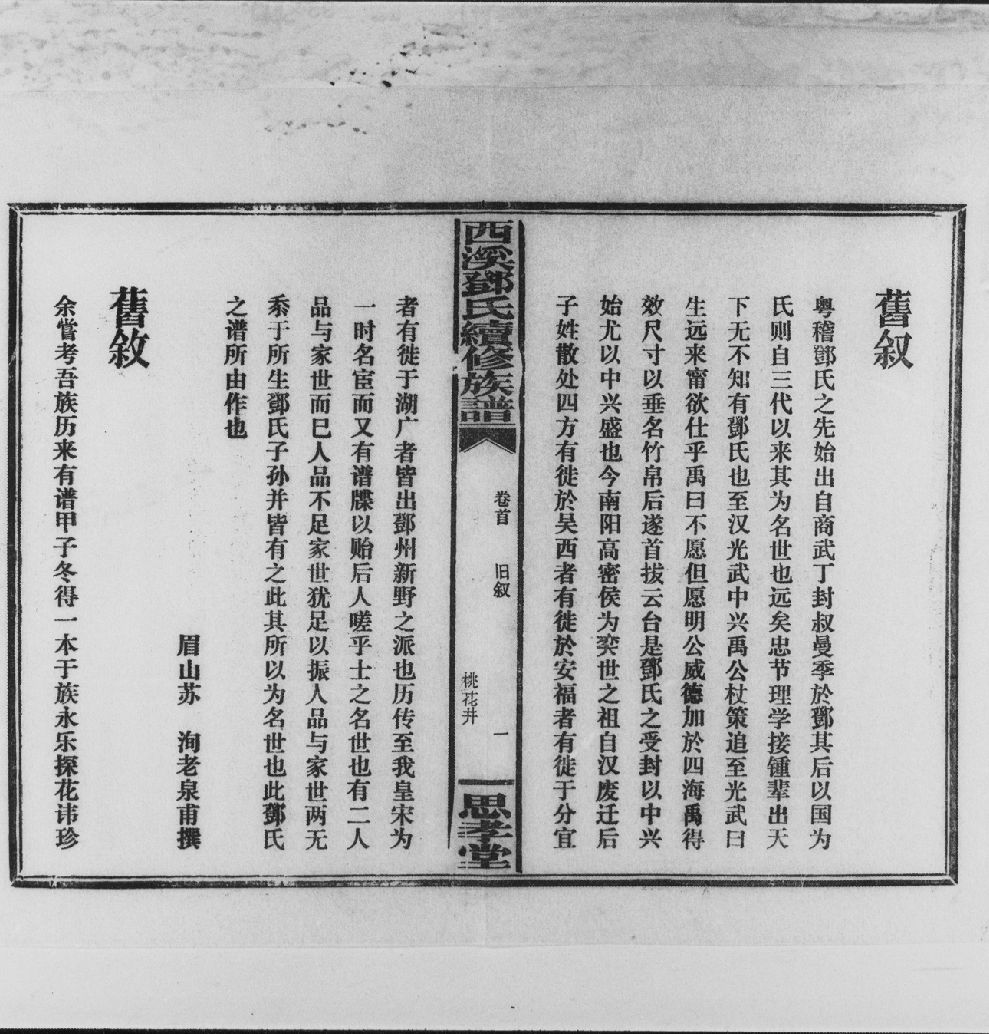 舊叙
粤稽鄧氏之先始出自商武丁封叔曼季於鄧其后以国为
氏则自三代以来其为名世也远矣忠节理学接锺辈出天
下无不知有鄧氏也至汉光武中兴禹公杖策追至光武曰
生远来甯欲仕乎禹曰不愿但愿明公威德加於四海禹得
效尺寸以垂名竹帛后遂首拔云台是鄧氏之受封以中兴
始尤以中兴盛也今南阳高密侯为奕世之祖自汉废迁后
子姓散处四方有徙於吴西者有徙於安福者有徙于分宜
西溪鄧氏續修族譜
卷首
旧叙
桃花井
一
思孝堂
者有徙于湖广者皆出鄧州新野之派也历传至我皇宋为
一时名宦而又有谱牒以贻后人嗟乎士之名世也有二人
品与家世而已人品不足家世犹足以振人品与家世两无
忝于所生鄧氏子孙并皆有之此其所以为名世也此鄧氏
之谱所由作也
眉山苏 洵老泉甫撰
舊敘
余嘗考吾族历来有谱甲子冬得一本于族永乐探花讳珍